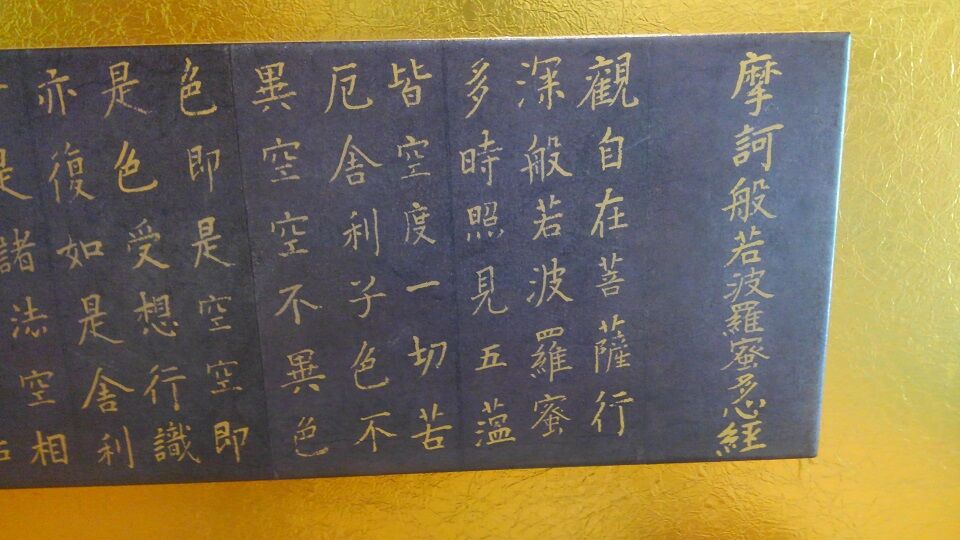 摩訶般若波羅蜜多心経
觀自在菩薩行
深般若波羅蜜
多時照見五薀
皆空度一切苦
厄舎利子色不
異空空不異色
色即是空空即
是色受想行識
亦復如是舎利
是諸法空相